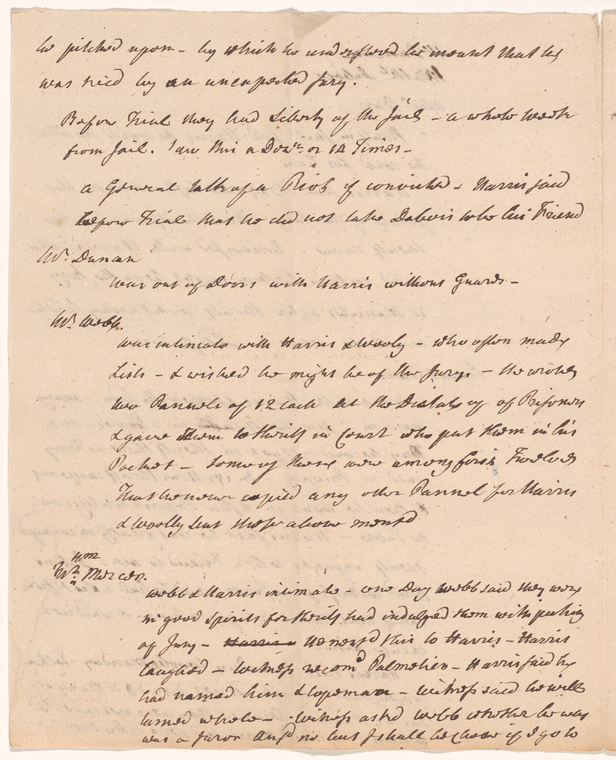 he pitched upon - by which he understood he meant that he
was tried by an unexpected Jury.
Before Trial they had Liberty of the Jail - a whole week
from Jail. saw this a Dozn. or 14 Times -
a General talk of a Riot if convicted - Harris said
before Trial that he did not take Dabois to be his Friend
Mr. Duncan
was out of Doors with Harris without Guards -
Mr. Webb.
was intimate with Harris & Wooly - who often made
Lists - & wished he might be of the Jury. - the wrote
two Pannels of 12 each at the Dictate of Prisoners
& gave them to Sheriff in Court who put them in his
Pocket - some of these were among first Twelve
That he never copied any other Pannel for Harris
& Woolly but those above mentd
Wm
Mercer.
Webb & Harris intimate - one Day Webb said they were
in good Spirits for Sheriff had indulged them with picking
of Jury - He mentd this to Harris - Harris
laughed - Witness recomd Palmetier - Harris said he
had named him & Copeman - Witness said he will
turned whole - Witness askd Webb whether he was
was a Juror Ansd no but I shall be if I go to